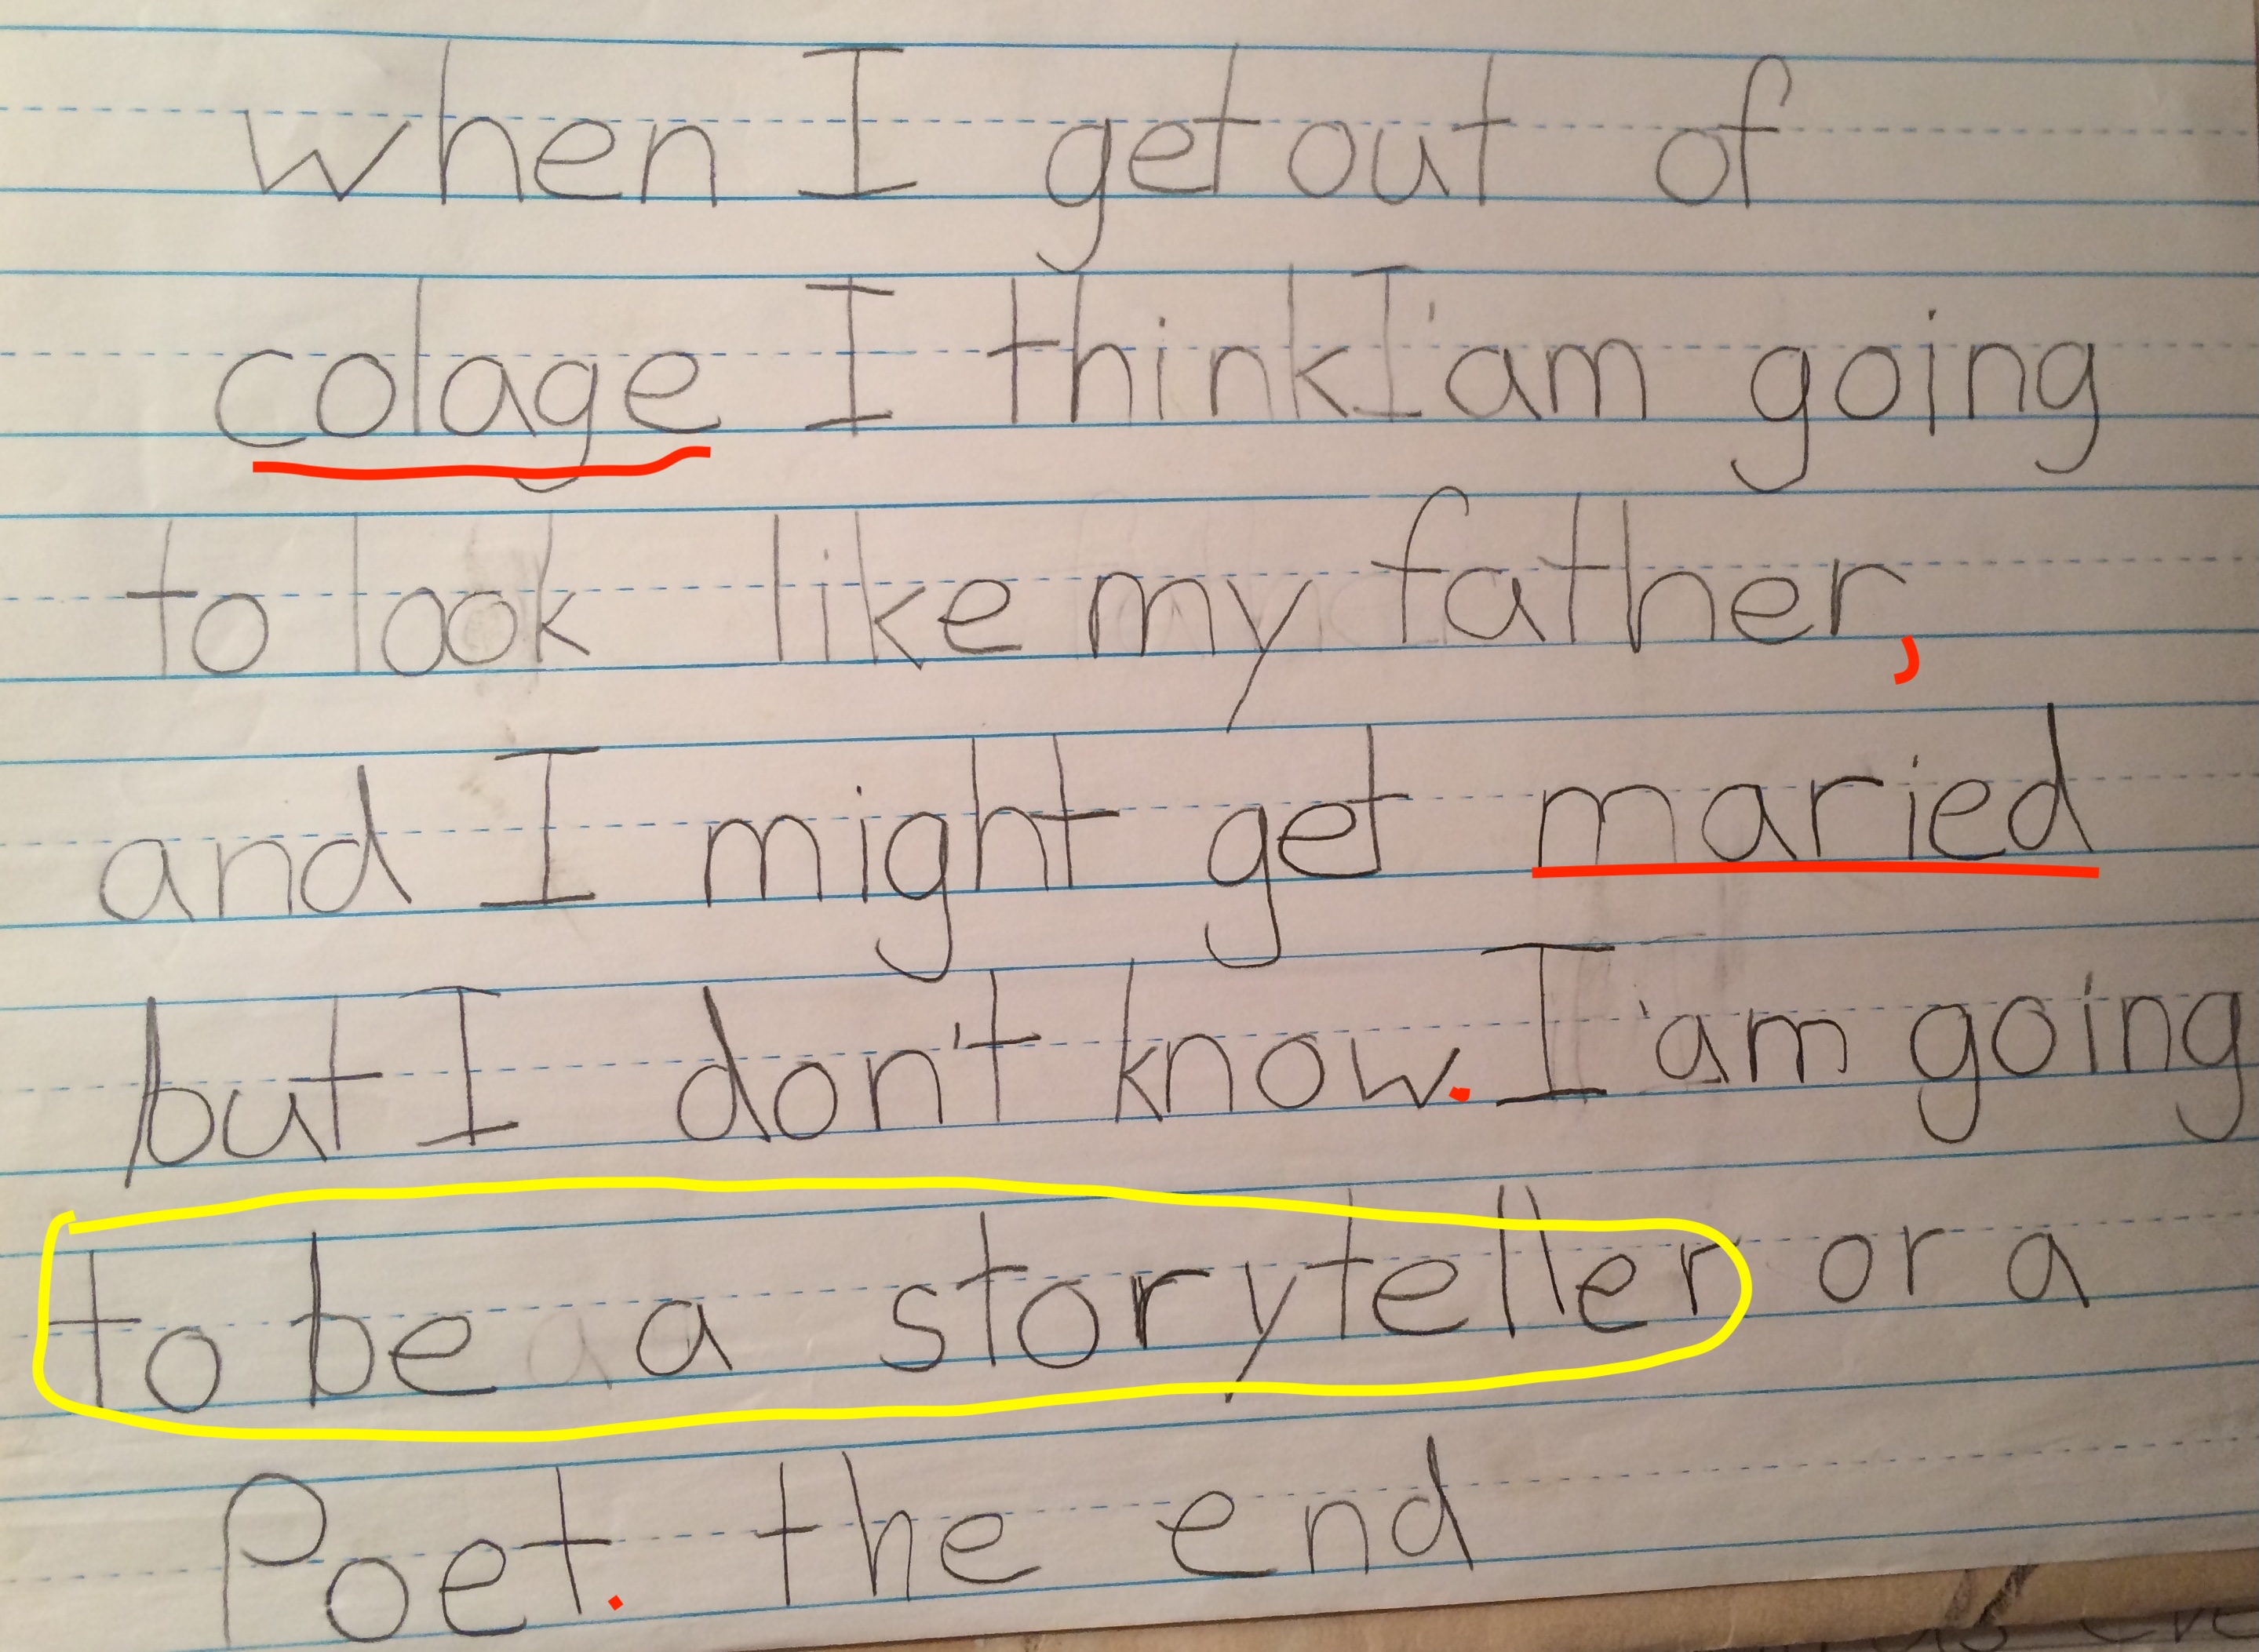 when I get out of
colage I think I'am going
to look like my father,
and I might get maried
but I don't know. I'am going
to be a storyteller or a
Poet. the end